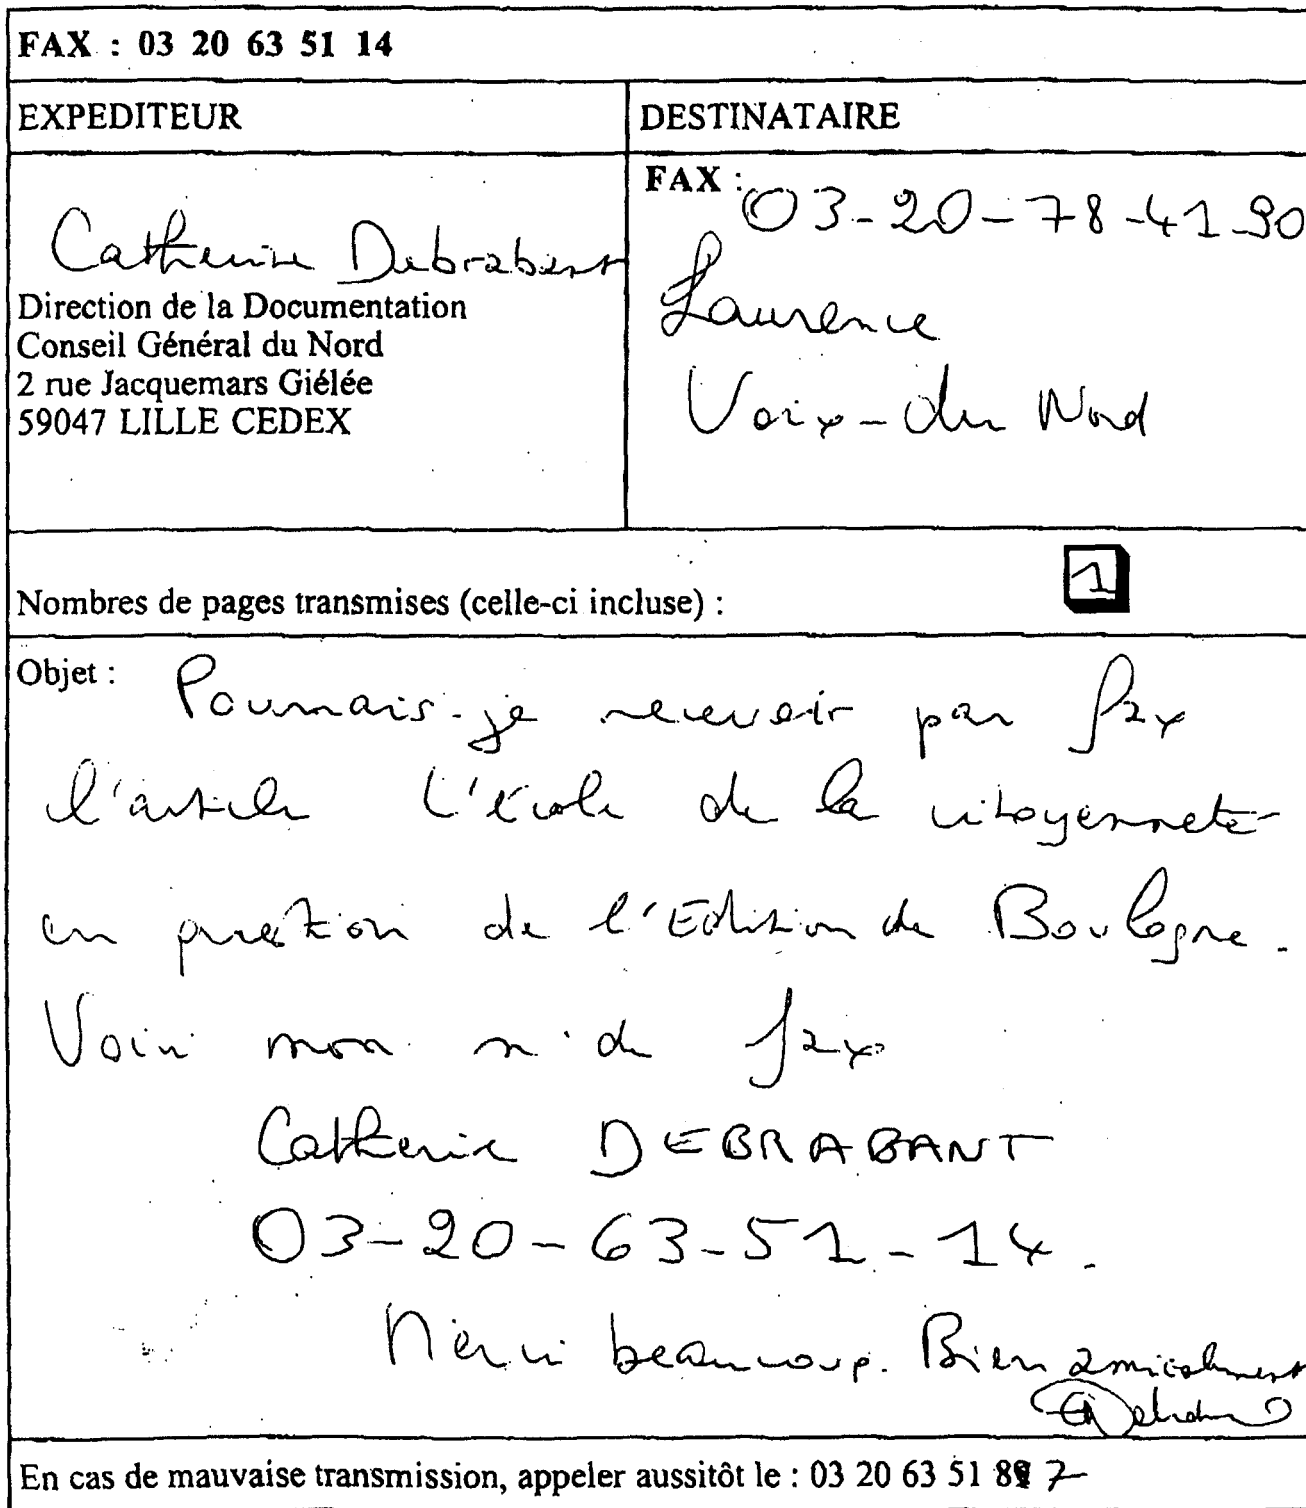 FAX : 03 20 63 51 14
EXPEDITEUR
DESTINATAIRE
Catherine Debrabant
Direction de la Documentation
Conseil Général du Nord
2 rue Jacquemars Giélée
59047 LILLE CEDEX
FAX : 03-20-78-41-90
Laurence
Voix-du Nord
Nombres de pages transmises (celle-ci incluse) : 1
Objet : Pourrais-je recevoir par fax
l'article L'école de la citoyenneté
en question de l'Edition de Boulogne.
Voici mon n° de fax
Catherine DEBRABANT
03-20-63-51-14.
Merci beaucoup. Bien amicalement
En cas de mauvaise transmission, appeler aussitôt le : 03 20 63 51 87